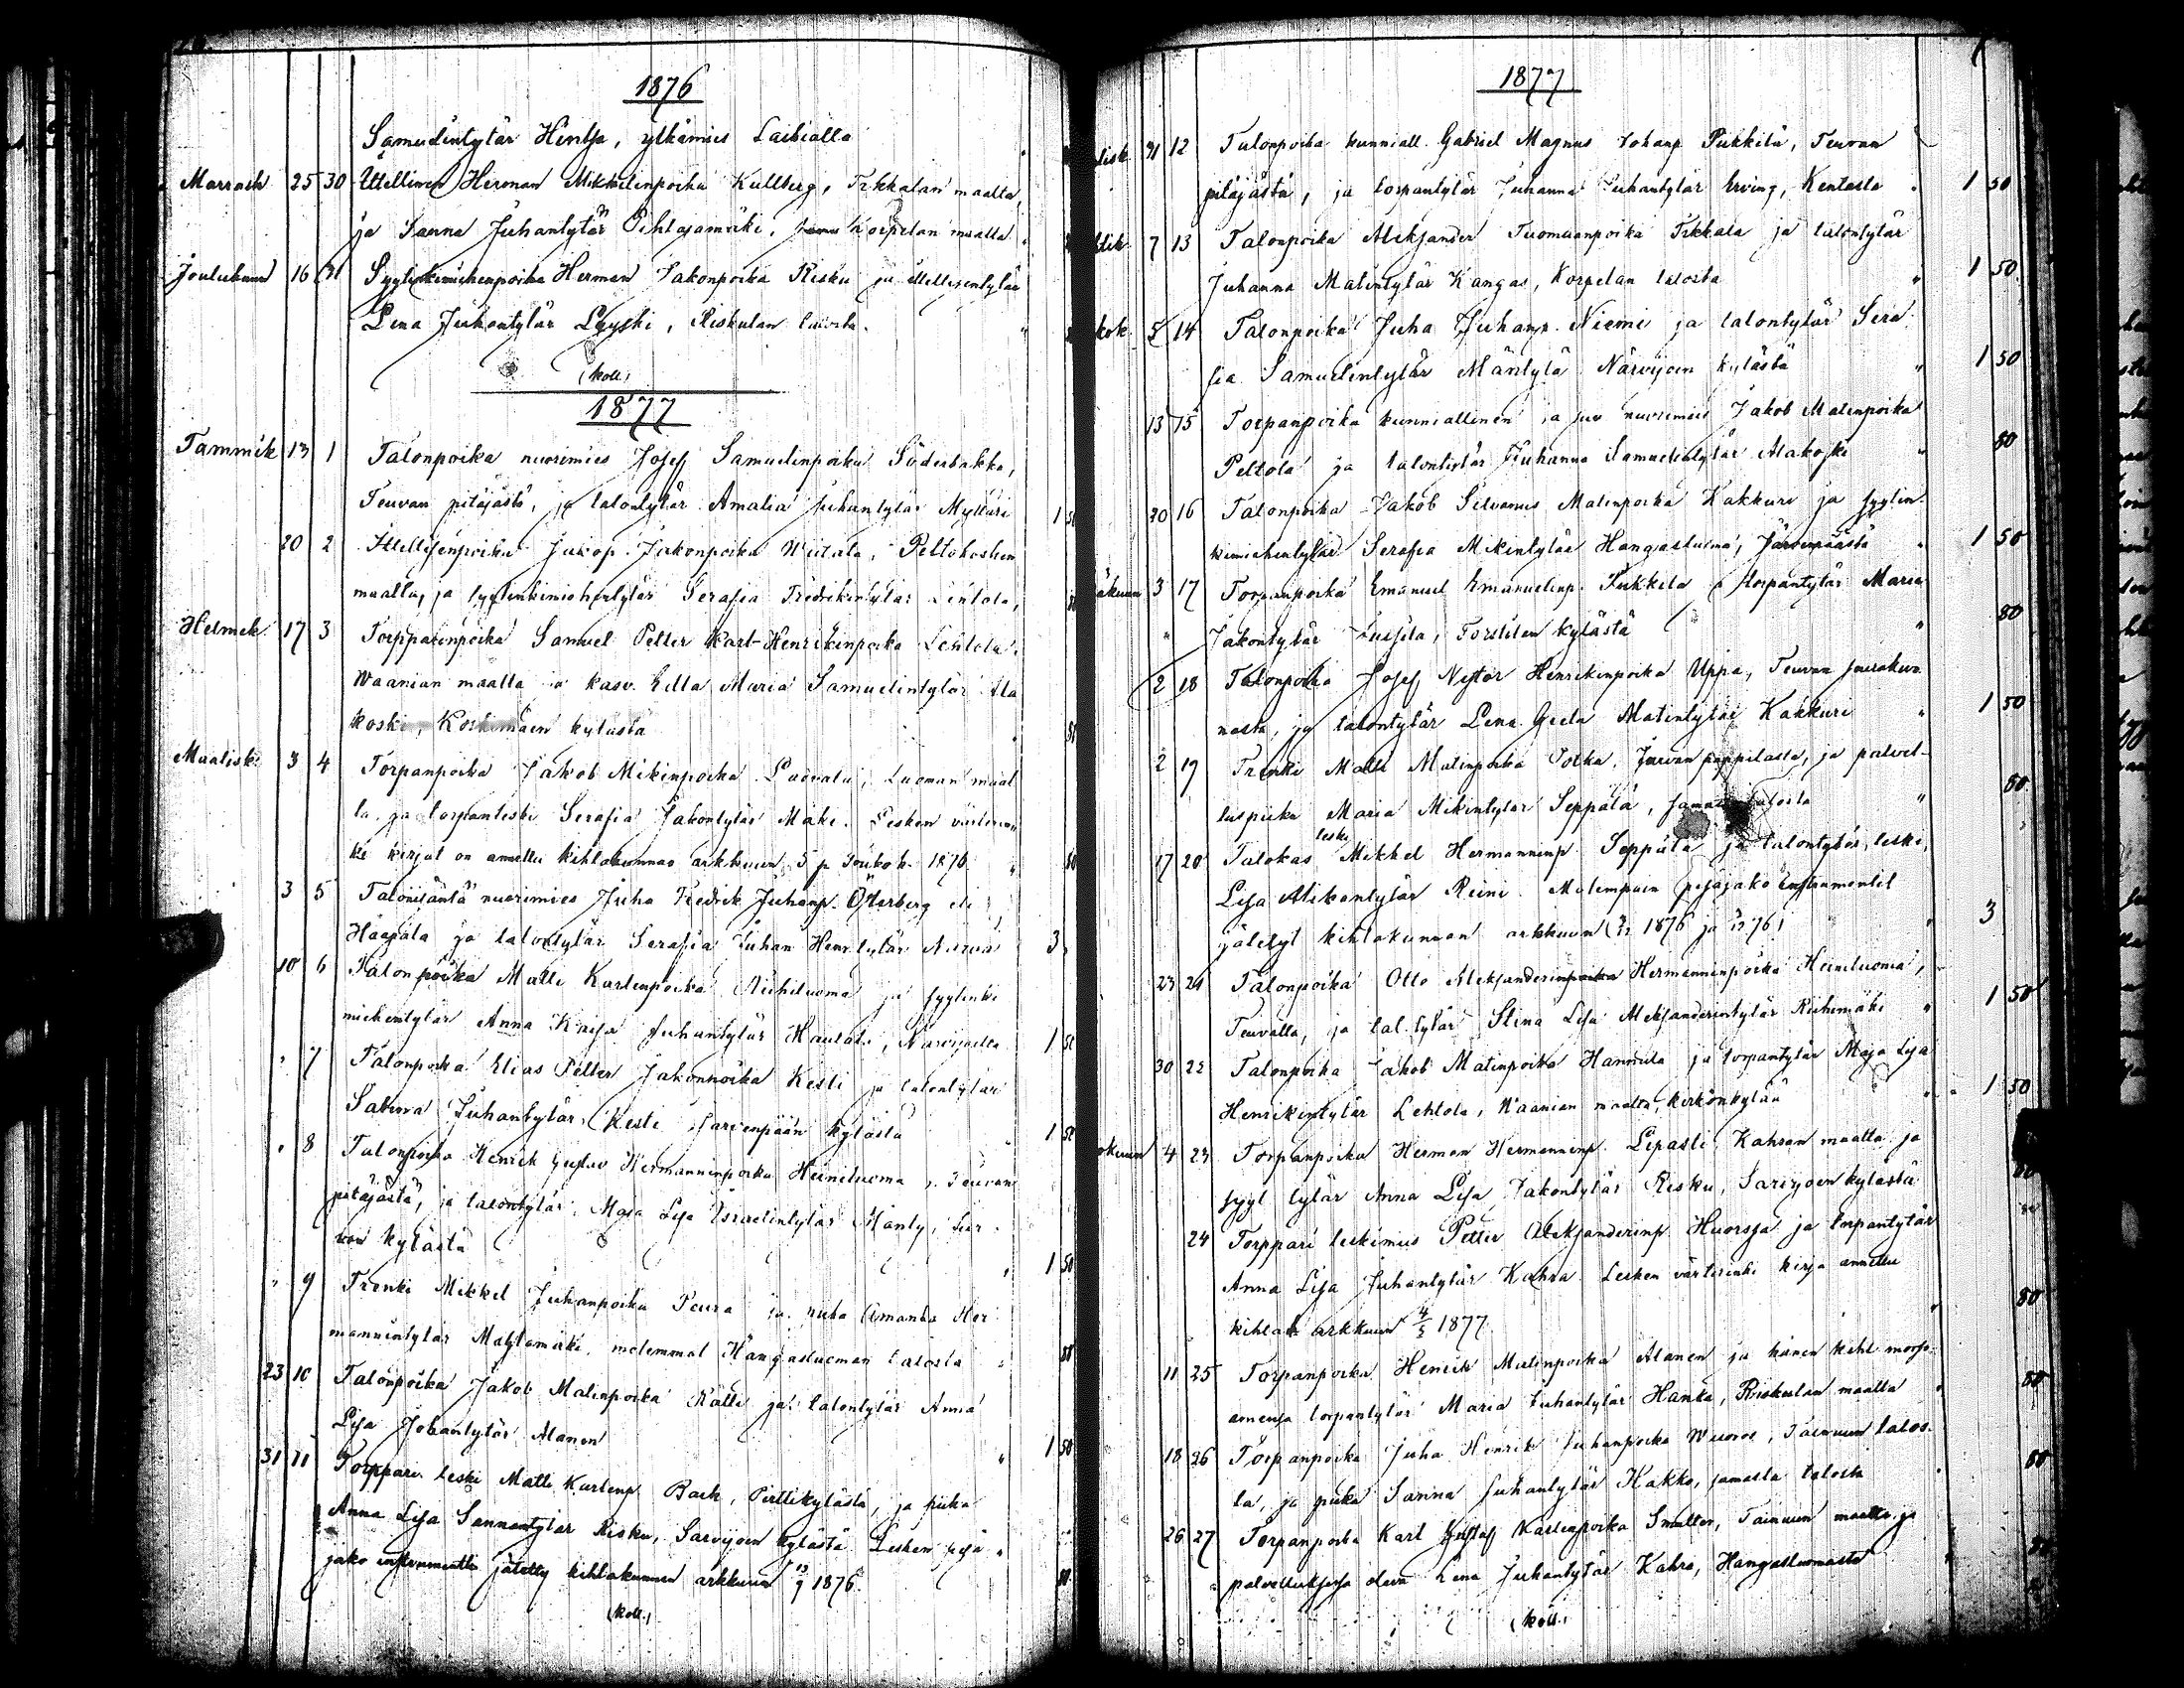 1876
Samuelintytär Hintsa, ytkämies Laibialla
Marrask 25 30 Ittellinen Herman Mikkelinpoika Kullberg, Tikkalan maalta,
ja Sanna Juhantytär Pihlajamäki, Korpelan maalta
Joulukuun 16 31 Syytinkimiehenpoika Herman Jakonpoika Risku ja ittellisentytär
Lena Juhantytär Löyski, Riskulan talosta.
(koll.)
1877
Tammik 13 1 Talonpoika nuorimies Josef Samuelinpoika Söderbakka,
Teuvan pitäjästä, ja talontytär Amalia Juhantytär Mylläri 1 50
20 2 Ittellisenpoika Jakop Jakonpoika Wiitala, Peltokosken
maalta, ja syytinkimiehentytär Serafia Fredrikintytär Lehtola,
Helmek. 17 3 Torpparinpoika Samuel Petter Karl-Henrikinpoika Lehtola,
Waanian maalta ja kasv. Edla Maria Samuelintytär Ala
koski, Koskimäen kylästä
Maalisk. 3 4 Torpanpoika Jakob Mikinpoika Luoman maal
la, ja torpanleski Serafia Jakontytär Mäki. Lesken värderin
ki kirjat on annettu kihlakunnan arkkuun 5 p Toukok. 1876. 80
3 5 Talonisäntä nuorimies Juha Fredrik Juhanp. Österberg eli
Haapala ja talontytär Serafia Juhan Henr.tytär Narva 3
10 6 Talonpoika Matti Karlenpoika Riihiluoma ja syytinki
miehentytär Anna Kaisa Juhantytär Hautala, Närvijoelta 1 50
" 7 Talonpoika Elias Petter Jakonpoika Kesti ja talontytär
Sabina Juhantytär Kesti Järvenpään kylästä 1 50
" 8 Talonpoika Henrik Gustav Hermanninpoika Heiniluoma, Teuvan
pitäjästä, ja talontytär Maja Lisa Israelintytär Mänty,
kylästä 1 50
" 9 Trenki Mikkel Juhanpoika Peura ja piika Amanda Her
mannintytär Mahlamäki, molemmat Hangasluoman talosta 80
23 10 Talonpoika Jakob Matinpoika Rätti ja talontytär Anna
Lisa Johantytär Alanen 1 50
31 11 Torppari leski Matti Karlenp. Back, Pirttikylästä, ja piika
Anna Lisa Sannantytär Risku, Sarvijoen kylästä Lesken pesä
jako instrumentti jätetty kihlakunnan arkkuun 1876. 80
(koll.)
1877
alisk 31 12 Talonpoika kunniall. Gabriel Magnus Johanp Pukkila, Teuvan
pitäjästä, ja torpantytär Juhanna Juhantytär Erving, Kentasta 1 50
htik 7 13 Talonpoika Aleksander Tuomaanpoika Tikkala ja talontytär
Juhanna Matintytär Kangas, Korpelan talosta 1 50
kok. 5 14 Talonpoika Juha Juhanp. Niemi ja talontytär Sera
fia Samuelintytär Mäntylä Närvijoen kylästä 1 50
13 15 Torpanpoika kunniallinen ja nuorimies Jakob Matinpoika
Peltola ja talontytär Juhanna Samuelintytär Alakoski 80
30 16 Talonpoika Jakob Silvanus Matinpoika Kakkuri ja syytin
kimiehentytär Serafia Mikintytär Hangasluoma, Järvenpäästä 1 50
äkuun 3 17 Torpanpoika Emanuel Emanuelinp. Pukkila ja torpantytär Maria
" Jakontytär Jussila, Torstilan kylästä 80
2 18 Talonpoika Josef Nestor Henrikinpoika Uppa, Teuvan seurakun
nasta, ja talontytär Lena Greta Matintytär Kakkuri 1 50
2 19 Trenki Matti Matinpoika pappilasta, ja palvel-
luspiika Maria Mikintytär Seppälä, samasta talosta 80
17 20 Talokas lesky Mikkel Hermanninp Seppälä ja talontytär, leski,
Lisa Mikontytär Reini. Molempain pesäjako instrumentit
jätetyt kihlakunnan arkkuun 1876 ja 76 3
23 21 Talonpoika Otto Aleksanderinpoika Hermanninpoika Heiniluoma,
Teuvalta, ja tal. tytär Stina Lisa Aleksanderintytär Riihimäki 1 50
30 22 Talonpoika Jakob Matinpoika Hannula ja torpantytär Maja Lisa
Henrikintytär Lehtola, Waanian maalta, kirkonkylää 1 50
okuun 4 23 Torpanpoika Herman Hermanninp. Lepasti Kahran maalta ja
syyt tytär Anna Lisa Jakontytär Risku, Sarvijoen kylästä 80
24 Torppari leskimies Petter Aleksanderinp. Huorsja ja torpantytär
Anna Lisa Juhantytär Kahra. Lesken värterinki kirja annettu
kihlak. arkkuun 4/5 1877. 80
11 25 Torpanpoika Henrik Matinpoika Alanen ja hänen kihl. mors-
amensa torpantytär Maria Juhantytär Hanka, Riskulan maalta 80
18 26 Torpanpoika Juha Henrik Juhanpoika Wuorre, Tainuun talos-
ta, ja piika Sanna Juhantytär Kakko, samasta talosta 80
26 27 Torpanpoika Karl Gustaf Karlenpoika Smatter, Tainuun maalta, ja
palvelluksessa oleva Lena Juhantytär Kahra, Hangasluomasta
(koll.)